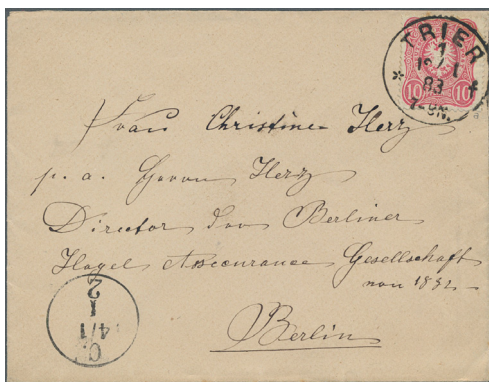 TRIER
1
83
7-8N.
10 10
Frau Christine Herz
p. a. Herrn Herz
Director der Berliner
Hagel Assecurance Gesellschaft
von 1832
Berlin